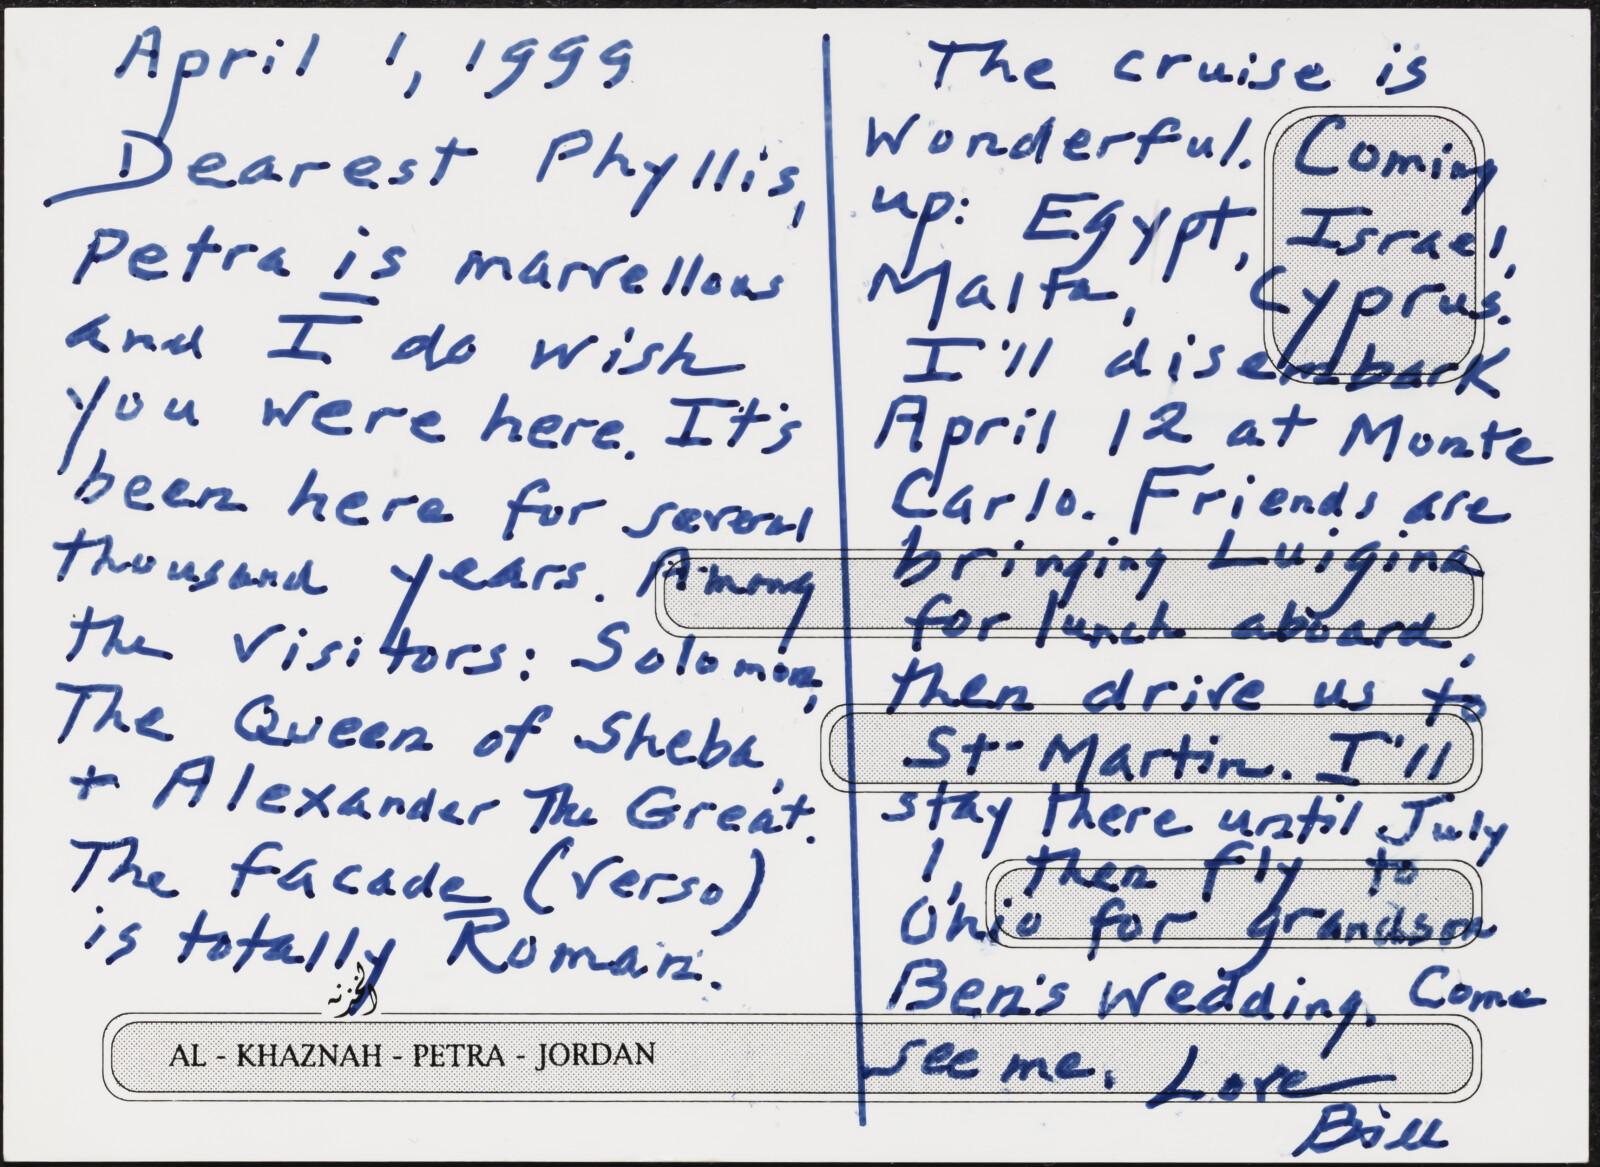 April 1, 1999
Dearest Phyllis,
Petra is marvellous
and I do wish
you were here. It's
been here for several
thousand years. Among
the visitors: Solomon,
The Queen of Sheba,
+ Alexander The Great.
The facade (verso)
is totally Roman.
الخزنه
AL - KHAZNAH - PETRA - JORDAN
The cruise is
wonderful. Coming
up: Egypt, Israel,
Malta, Cyprus.
I'll disembark
April 12 at Monte
Carlo. Friends are
bringing Luigina
for lunch aboard,
then drive us to
St Martin. I'll
stay there until July
1, then fly to
Ohio for grandson
Ben's wedding. Come
see me. Love
Bill